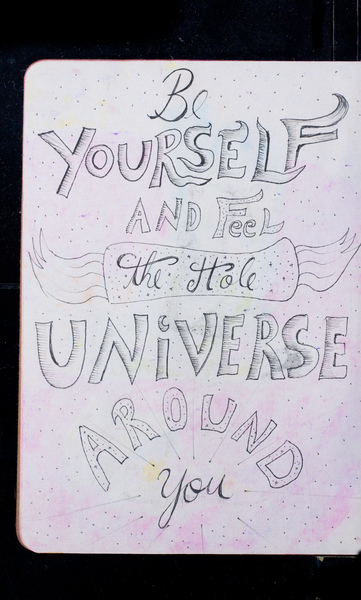 Be
YOURSELF
AND FeeL
the Hole
UNiVERSE
AROUND
you